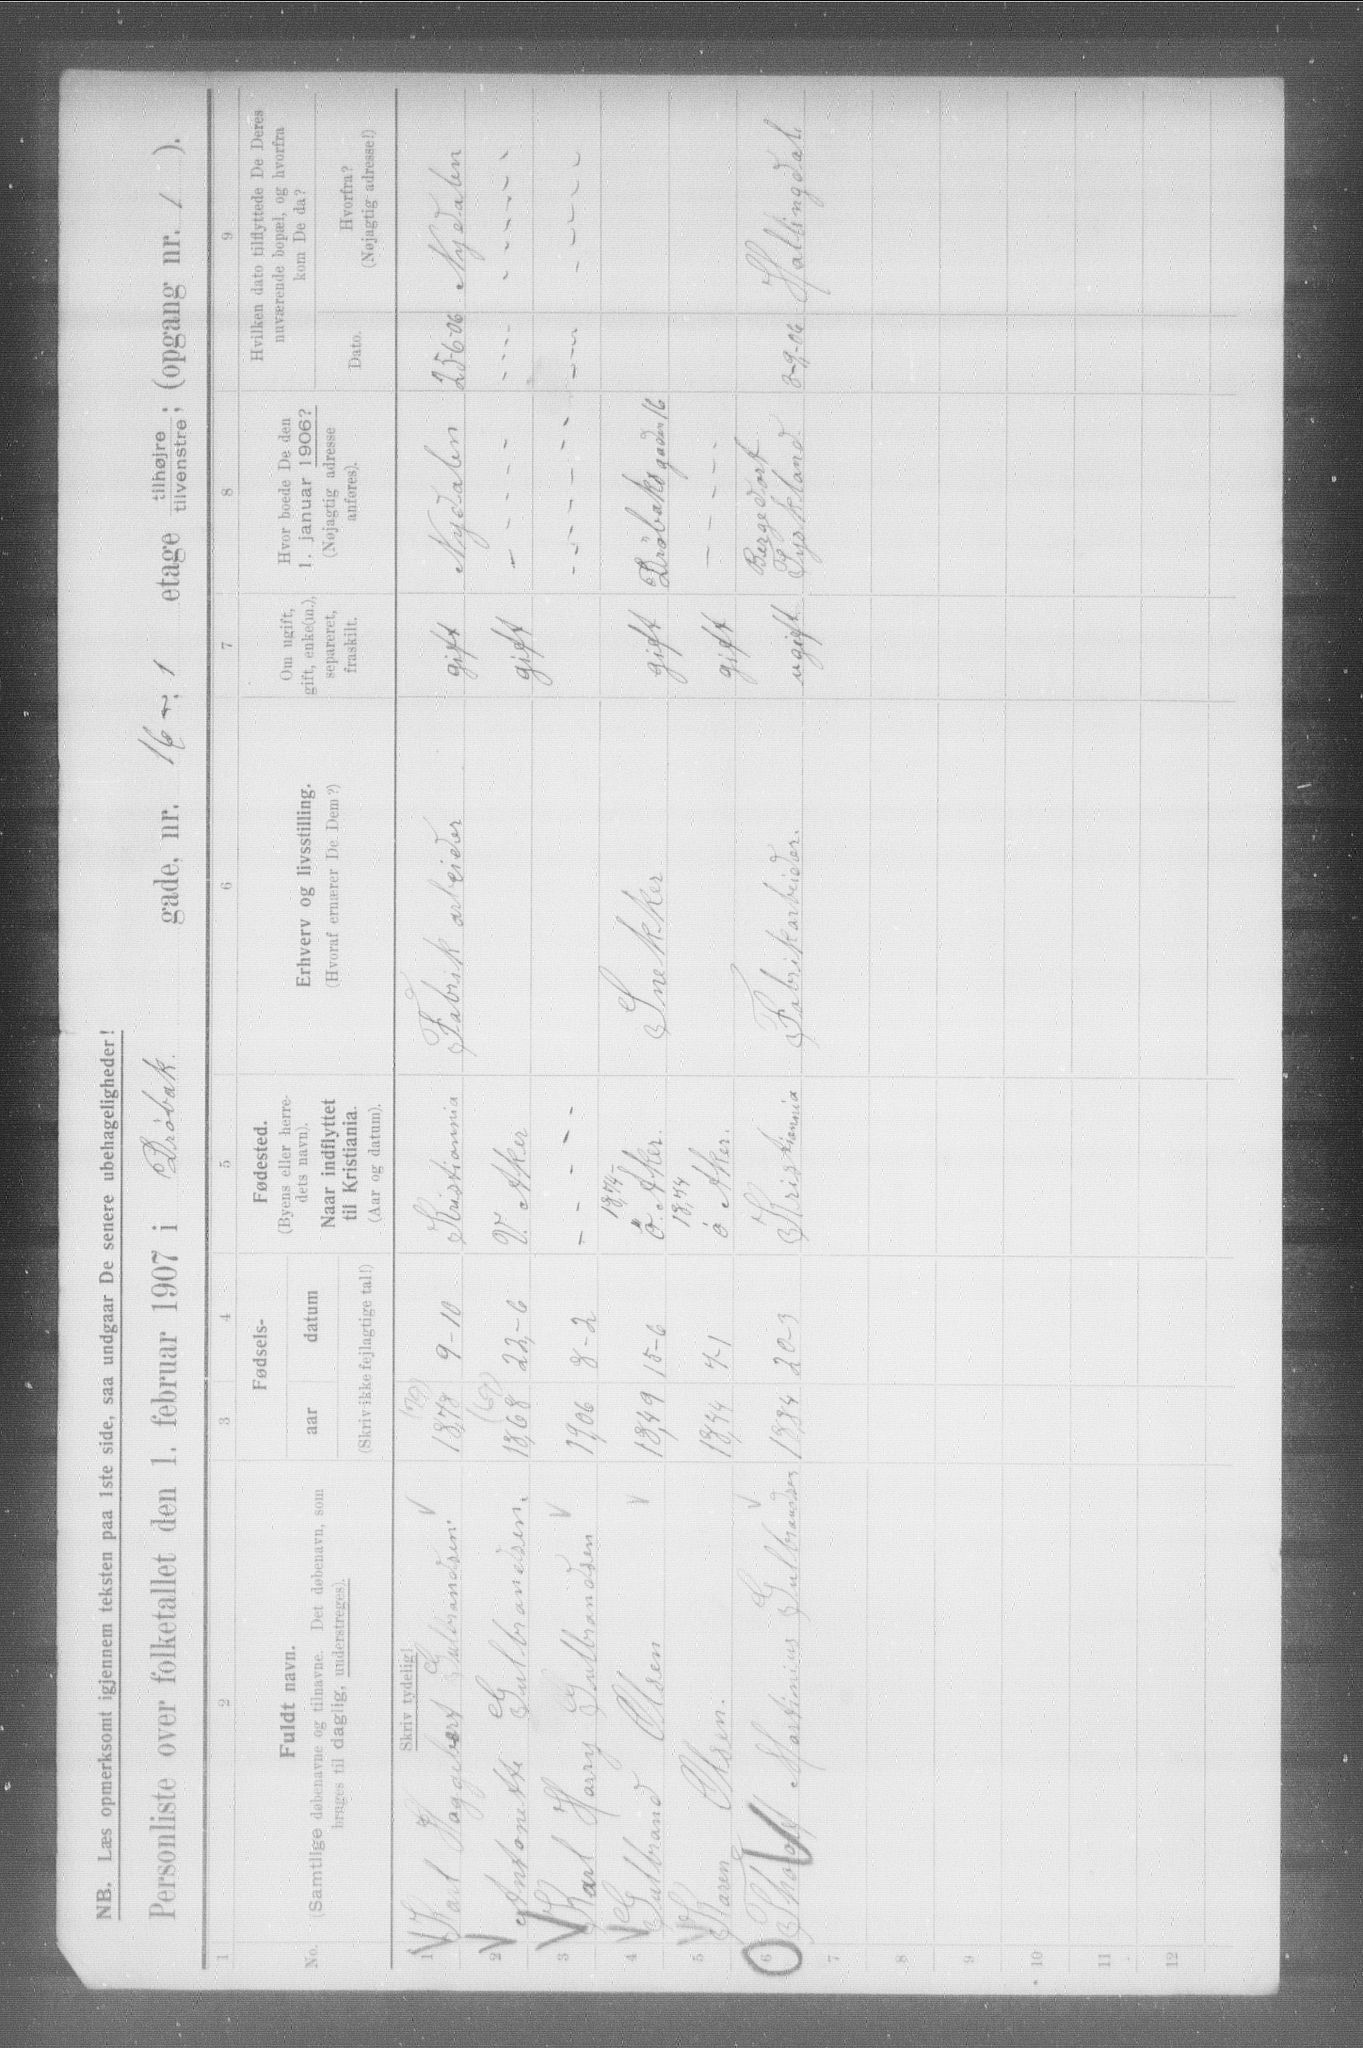 NB. Læs opmerksomt igjennem teksten paa 1ste side, saa undgaar De senere ubehageligheder!
Personliste over folketallet den 1. februar 1907 i Drøbak. gade, nr. 16 1 etage tilhøjre tilvenstre; (opgang nr. 1 ).
1 2 3 4 5 6 7 8 9
No.
Fuldt navn.
(Samtlige døbenavne og tilnavne. Det døbenavn, som
bruges til daglig, understreges).
Fødsels-
aar datum
(Skriv ikke fejlagtige tal!)
Fødested.
(Byens eller herre-
dets navn).
Naar indflyttet
til Kristiania.
(Aar og datum).
Erhverv og livsstilling.
(Hvoraf ernærer De Dem?)
Om ugift,
gift, enke(m.),
separeret,
fraskilt.
Hvor boede De den
1. januar 1906?
(Nøjagtig adresse
anføres).
Hvilken dato tilflyttede De Deres
nuværende bopæl, og hvorfra
kom De da?
Dato.
Hvorfra?
(Nøjagtig adresse!)
Skriv tydelig!
1 Karl Haggebert Gulbrandsen. 1878 9-10 Kristiannia Fabrik arbeider gift Nydalen 25-6-06 Nydalen
2 Antonette Gulbrandsen. 1868 22-6 V. Aker gift - - - - - - - - - - - - -
3 Karl Harry Gulbrandsen 1906 8-2 - - - - - - - - - - - - - - - - -
4 Gulbrand Olsen 1849 15-6 1874 ö. Aker. Snekker gift Dröbaksgaden 16
5 Karen Olsen. 1844 7-1 1874 ö Aker. gift - - - -
6 Thorolf Martinius Gulbrandsen 1884 20-3 Kristiannia Fabrikarbeider. ugift Bergedorf Tyskland 8-9-06 Hallingdal.
7
8
9
10
11
12